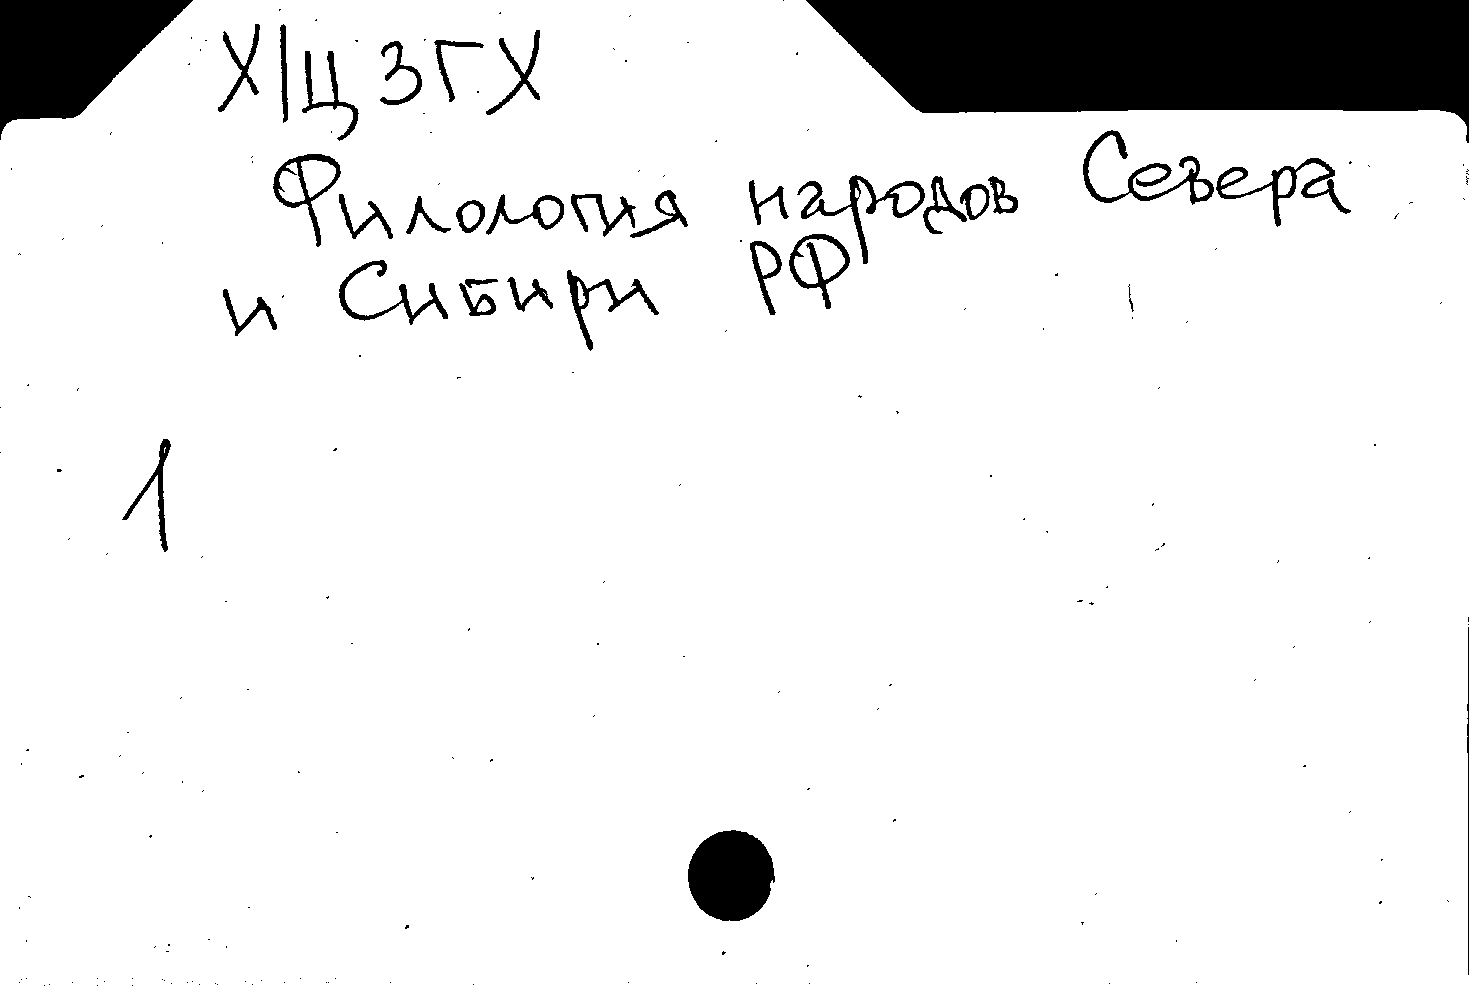 Х|ЦЗГХ
Филология народов Севера
и Сибири РФ
1